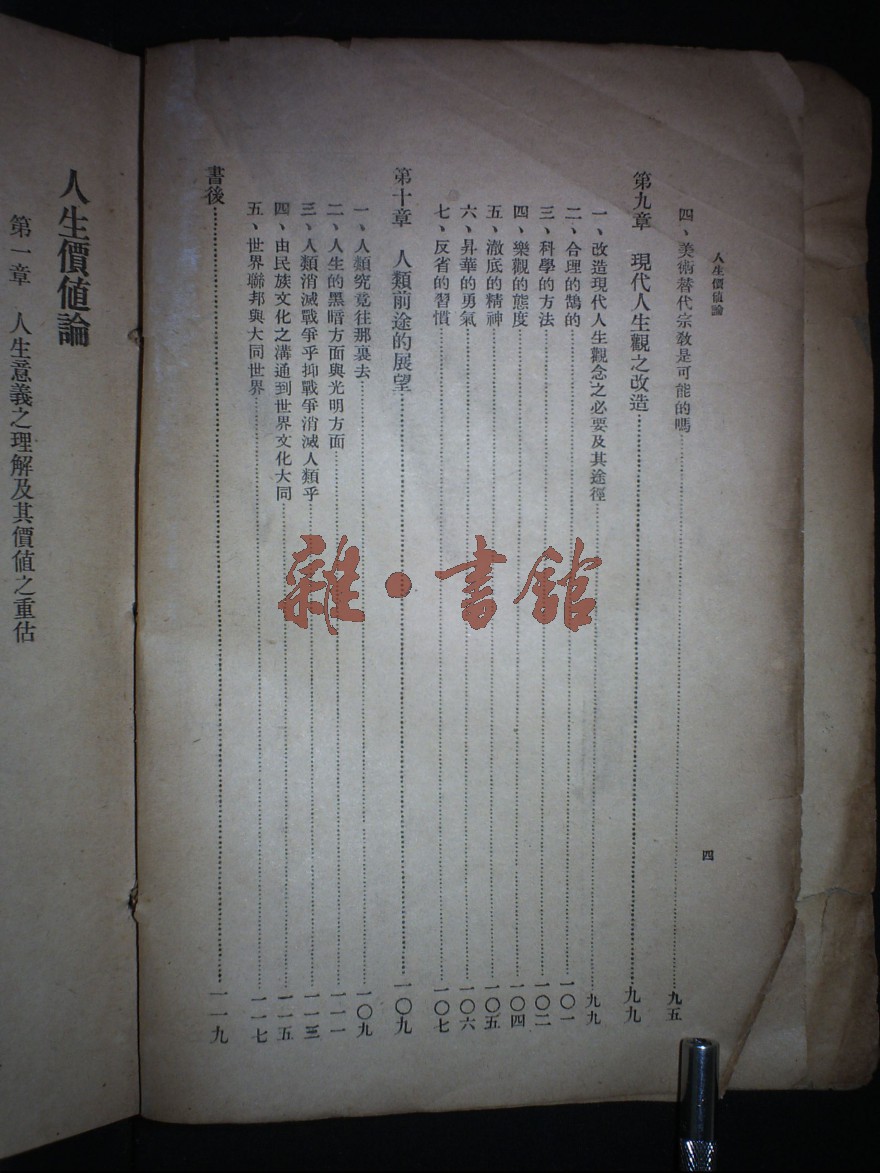 人生價值論
四
四、美術替代宗教是可能的嗎……九五
第九章　現代人生觀之改造……九九
一、改造現代人生觀念之必要及其途徑……九九
二、合理的鵠的……一〇一
三、科學的方法……一〇二
四、樂觀的態度……一〇四
五、澈底的精神……一〇五
六、昇華的勇氣……一〇六
七、反省的習慣……一〇七
第十章　人類前途的展望……一〇九
一、人類究竟往那裏去……一〇九
二、人生的黑暗方面與光明方面……一一一
三、人類消滅戰爭乎抑戰爭消滅人類乎……一一三
四、由民族文化之溝通到世界文化大同……一一五
五、世界聯邦與大同世界……一一七
書後……一一九
人生價值論
第一章　人生意義之理解及其價值之重估
雜·書館